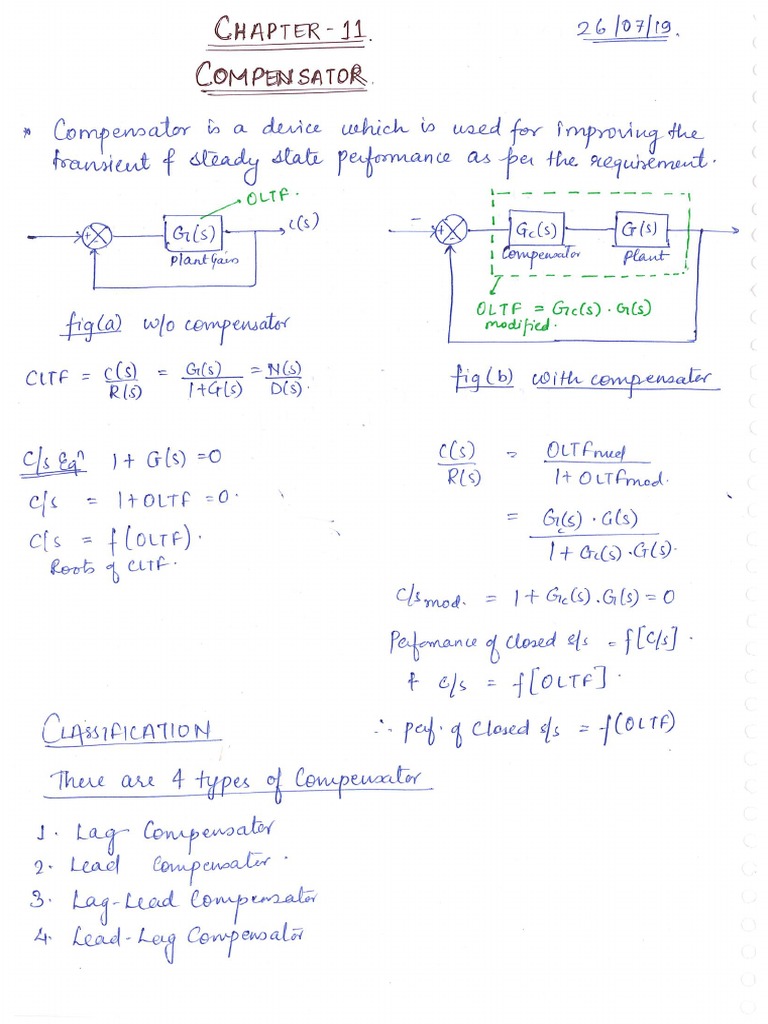 CHAPTER-11.
26/07/19.
COMPENSATOR.
* Compensator is a device which is used for improving the
transient & steady state performance as per the requirement.
OLTF.
G(s)
C(s)
Plant Gain
+
-
fig(a) w/o compensator
CLTF = C(s)/R(s) = G(s)/1+G(s) = N(s)/D(s).
-
+
-
Gc(s)
G(s)
Compensator
Plant
OLTF = Gc(s).G(s)
modified.
fig(b) with compensater
C/s Eqⁿ 1+G(s)=0
C/s = 1+OLTF=0.
C/s = f(OLTF).
Roots of CLTF.
C(s)/R(s) = OLTFmod/1+OLTFmod.
= Gc(s).G(s)/1+Gc(s).G(s).
C/s mod. = 1+Gc(s).G(s)=0
Perfomance of closed s/s = f[C/s].
& c/s = f[OLTF].
∴ perf. of Closed s/s = f(OLTF)
CLASSIFICATION
There are 4 types of Compensator
1. Lag Compensator
2. Lead Compensater.
3. Lag-Lead Compensator
4. Lead-Lag Compensator